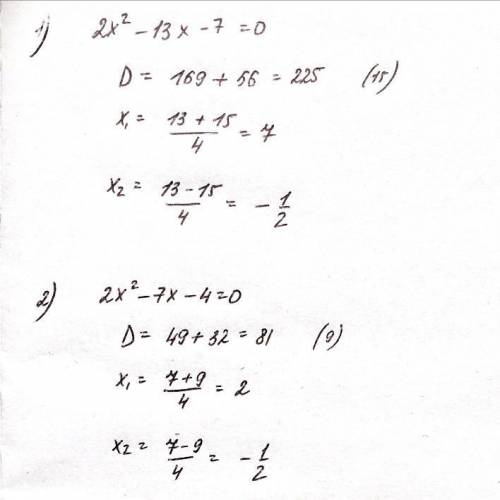 1) 2x² - 13x - 7 = 0
D = 169 + 56 = 225 (15)
x₁ = (13 + 15)/4 = 7
x₂ = (13 - 15)/4 = - 1/2
2) 2x² - 7x - 4 = 0
D = 49 + 32 = 81 (9)
x₁ = (7 + 9)/4 = 2
x₂ = (7 - 9)/4 = - 1/2